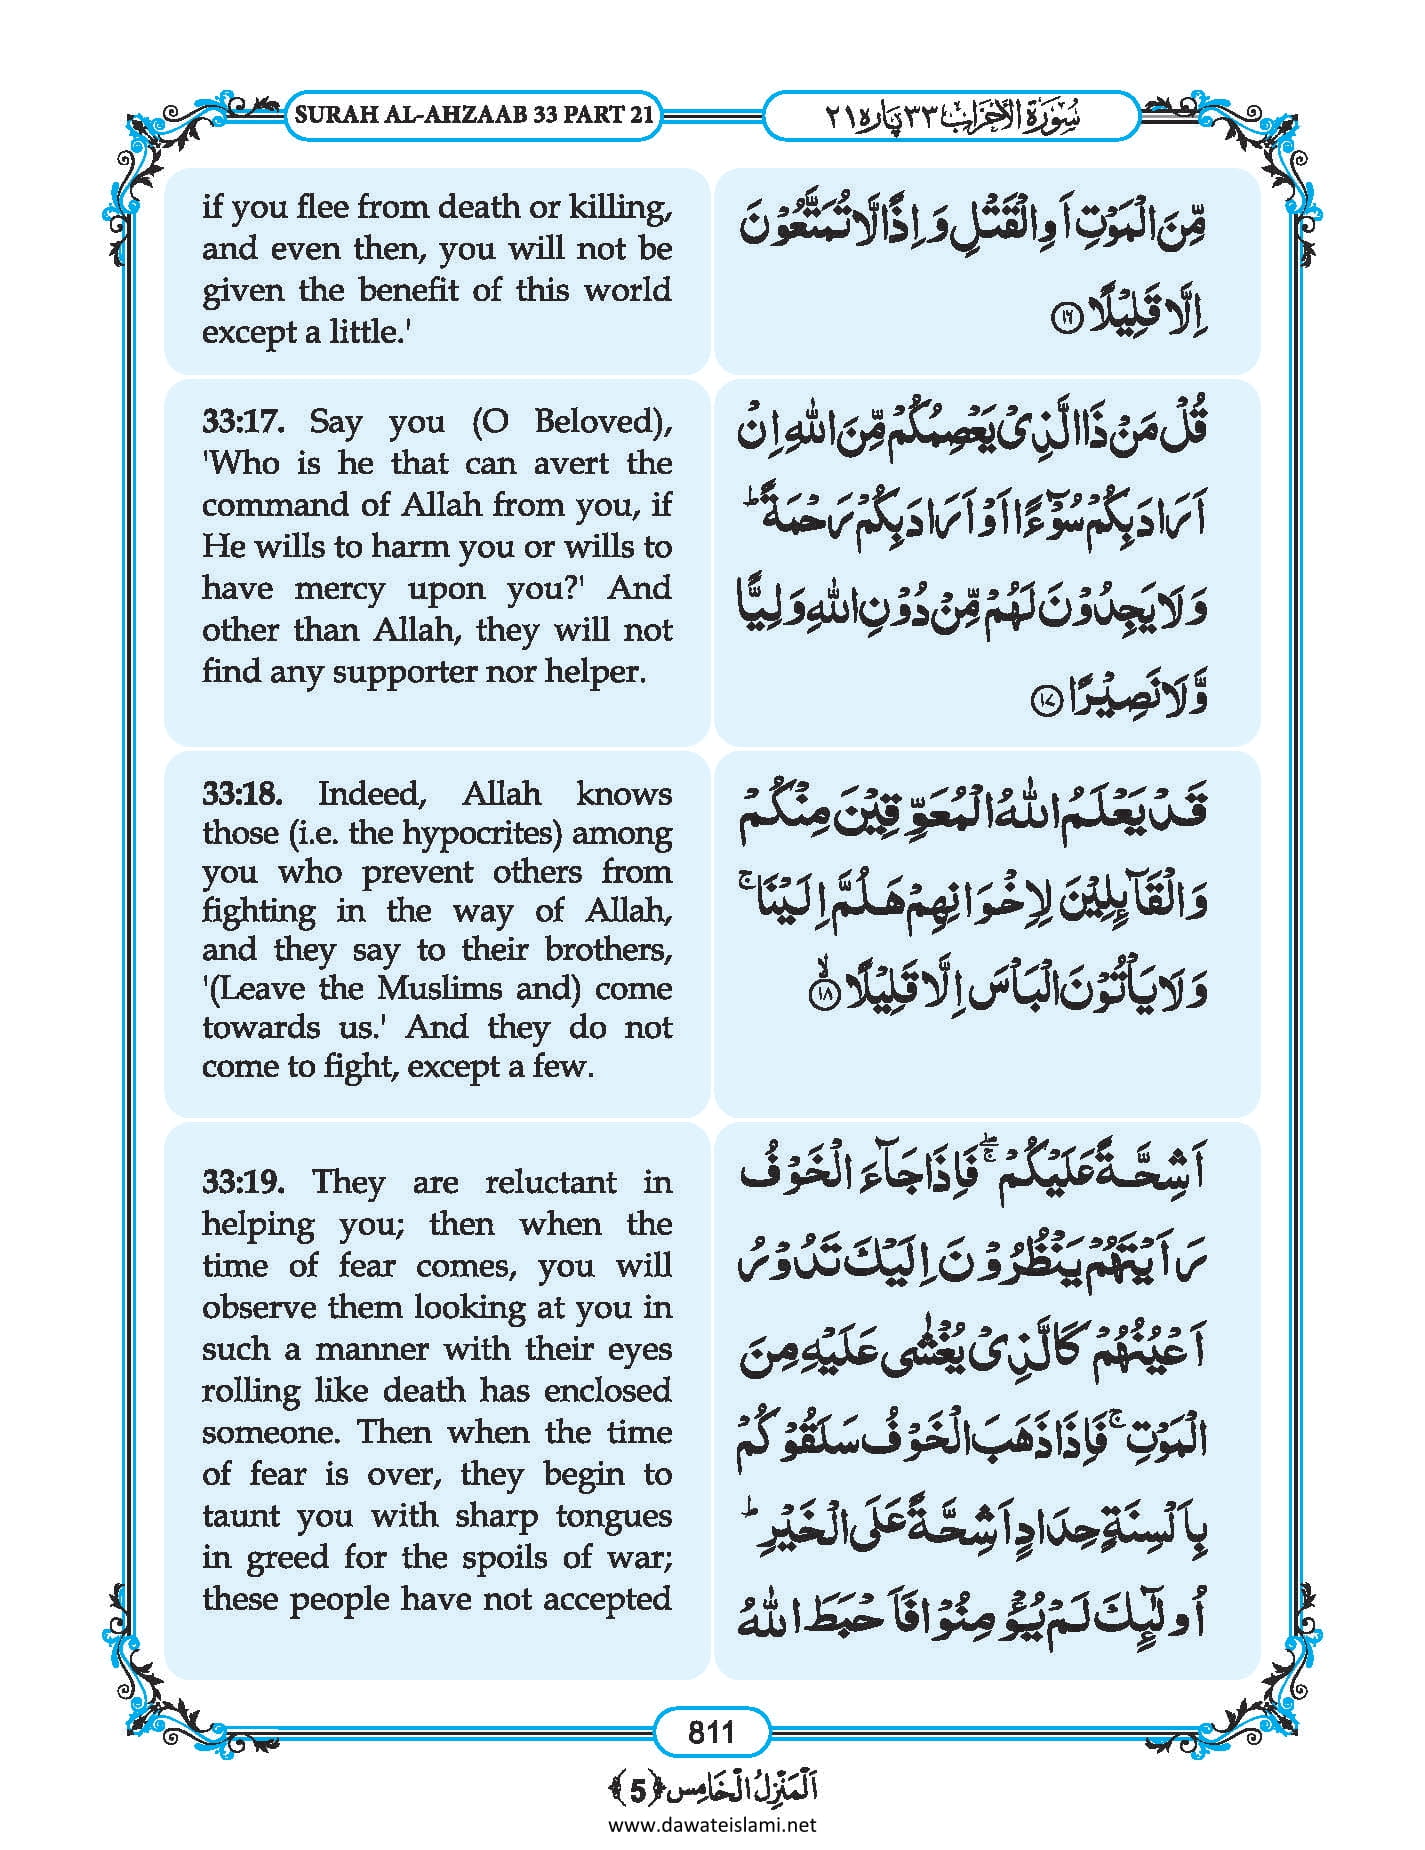 SURAH AL-AHZAAB 33 PART 21
سُوْرَةُ الْاَحْزَاب ۳۳ پاره ۲۱
if you flee from death or killing,
and even then, you will not be
given the benefit of this world
except a little.'
مِّنَ الْمَوْتِ اَوِ الْقَتْلِ وَ اِذًا لَّا تُمَتَّعُوْنَ
اِلَّا قَلِیْلًا ﴿۱۶﴾
33:17. Say you (O Beloved),
'Who is he that can avert the
command of Allah from you, if
He wills to harm you or wills to
have mercy upon you?' And
other than Allah, they will not
find any supporter nor helper.
قُلْ مَنْ ذَا الَّذِیْ یَعْصِمُكُمْ مِّنَ اللّٰهِ اِنْ
اَرَادَ بِكُمْ سُوْٓءًا اَوْ اَرَادَ بِكُمْ رَحْمَةً ؕ
وَ لَا یَجِدُوْنَ لَهُمْ مِّنْ دُوْنِ اللّٰهِ وَلِیًّا
وَّ لَا نَصِیْرًا ﴿۱۷﴾
33:18. Indeed, Allah knows
those (i.e. the hypocrites) among
you who prevent others from
fighting in the way of Allah,
and they say to their brothers,
'(Leave the Muslims and) come
towards us.' And they do not
come to fight, except a few.
قَدْ یَعْلَمُ اللّٰهُ الْمُعَوِّقِیْنَ مِنْكُمْ
وَ الْقَآىِٕلِیْنَ لِاِخْوَانِهِمْ هَلُمَّ اِلَیْنَا ۚ
وَ لَا یَاْتُوْنَ الْبَاْسَ اِلَّا قَلِیْلًا ﴿ۙ۱۸﴾
33:19. They are reluctant in
helping you; then when the
time of fear comes, you will
observe them looking at you in
such a manner with their eyes
rolling like death has enclosed
someone. Then when the time
of fear is over, they begin to
taunt you with sharp tongues
in greed for the spoils of war;
these people have not accepted
اَشِحَّةً عَلَیْكُمْ ۖۚ فَاِذَا جَآءَ الْخَوْفُ
رَاَیْتَهُمْ یَنْظُرُوْنَ اِلَیْكَ تَدُوْرُ
اَعْیُنُهُمْ كَالَّذِیْ یُغْشٰى عَلَیْهِ مِنَ
الْمَوْتِ ۚ فَاِذَا ذَهَبَ الْخَوْفُ سَلَقُوْكُمْ
بِاَلْسِنَةٍ حِدَادٍ اَشِحَّةً عَلَى الْخَیْرِ ؕ
اُولٰٓىِٕكَ لَمْ یُؤْمِنُوْا فَاَحْبَطَ اللّٰهُ
811
اَلْمَنْزِلُ الْخَامِس ﴿5﴾
www.dawateislami.net